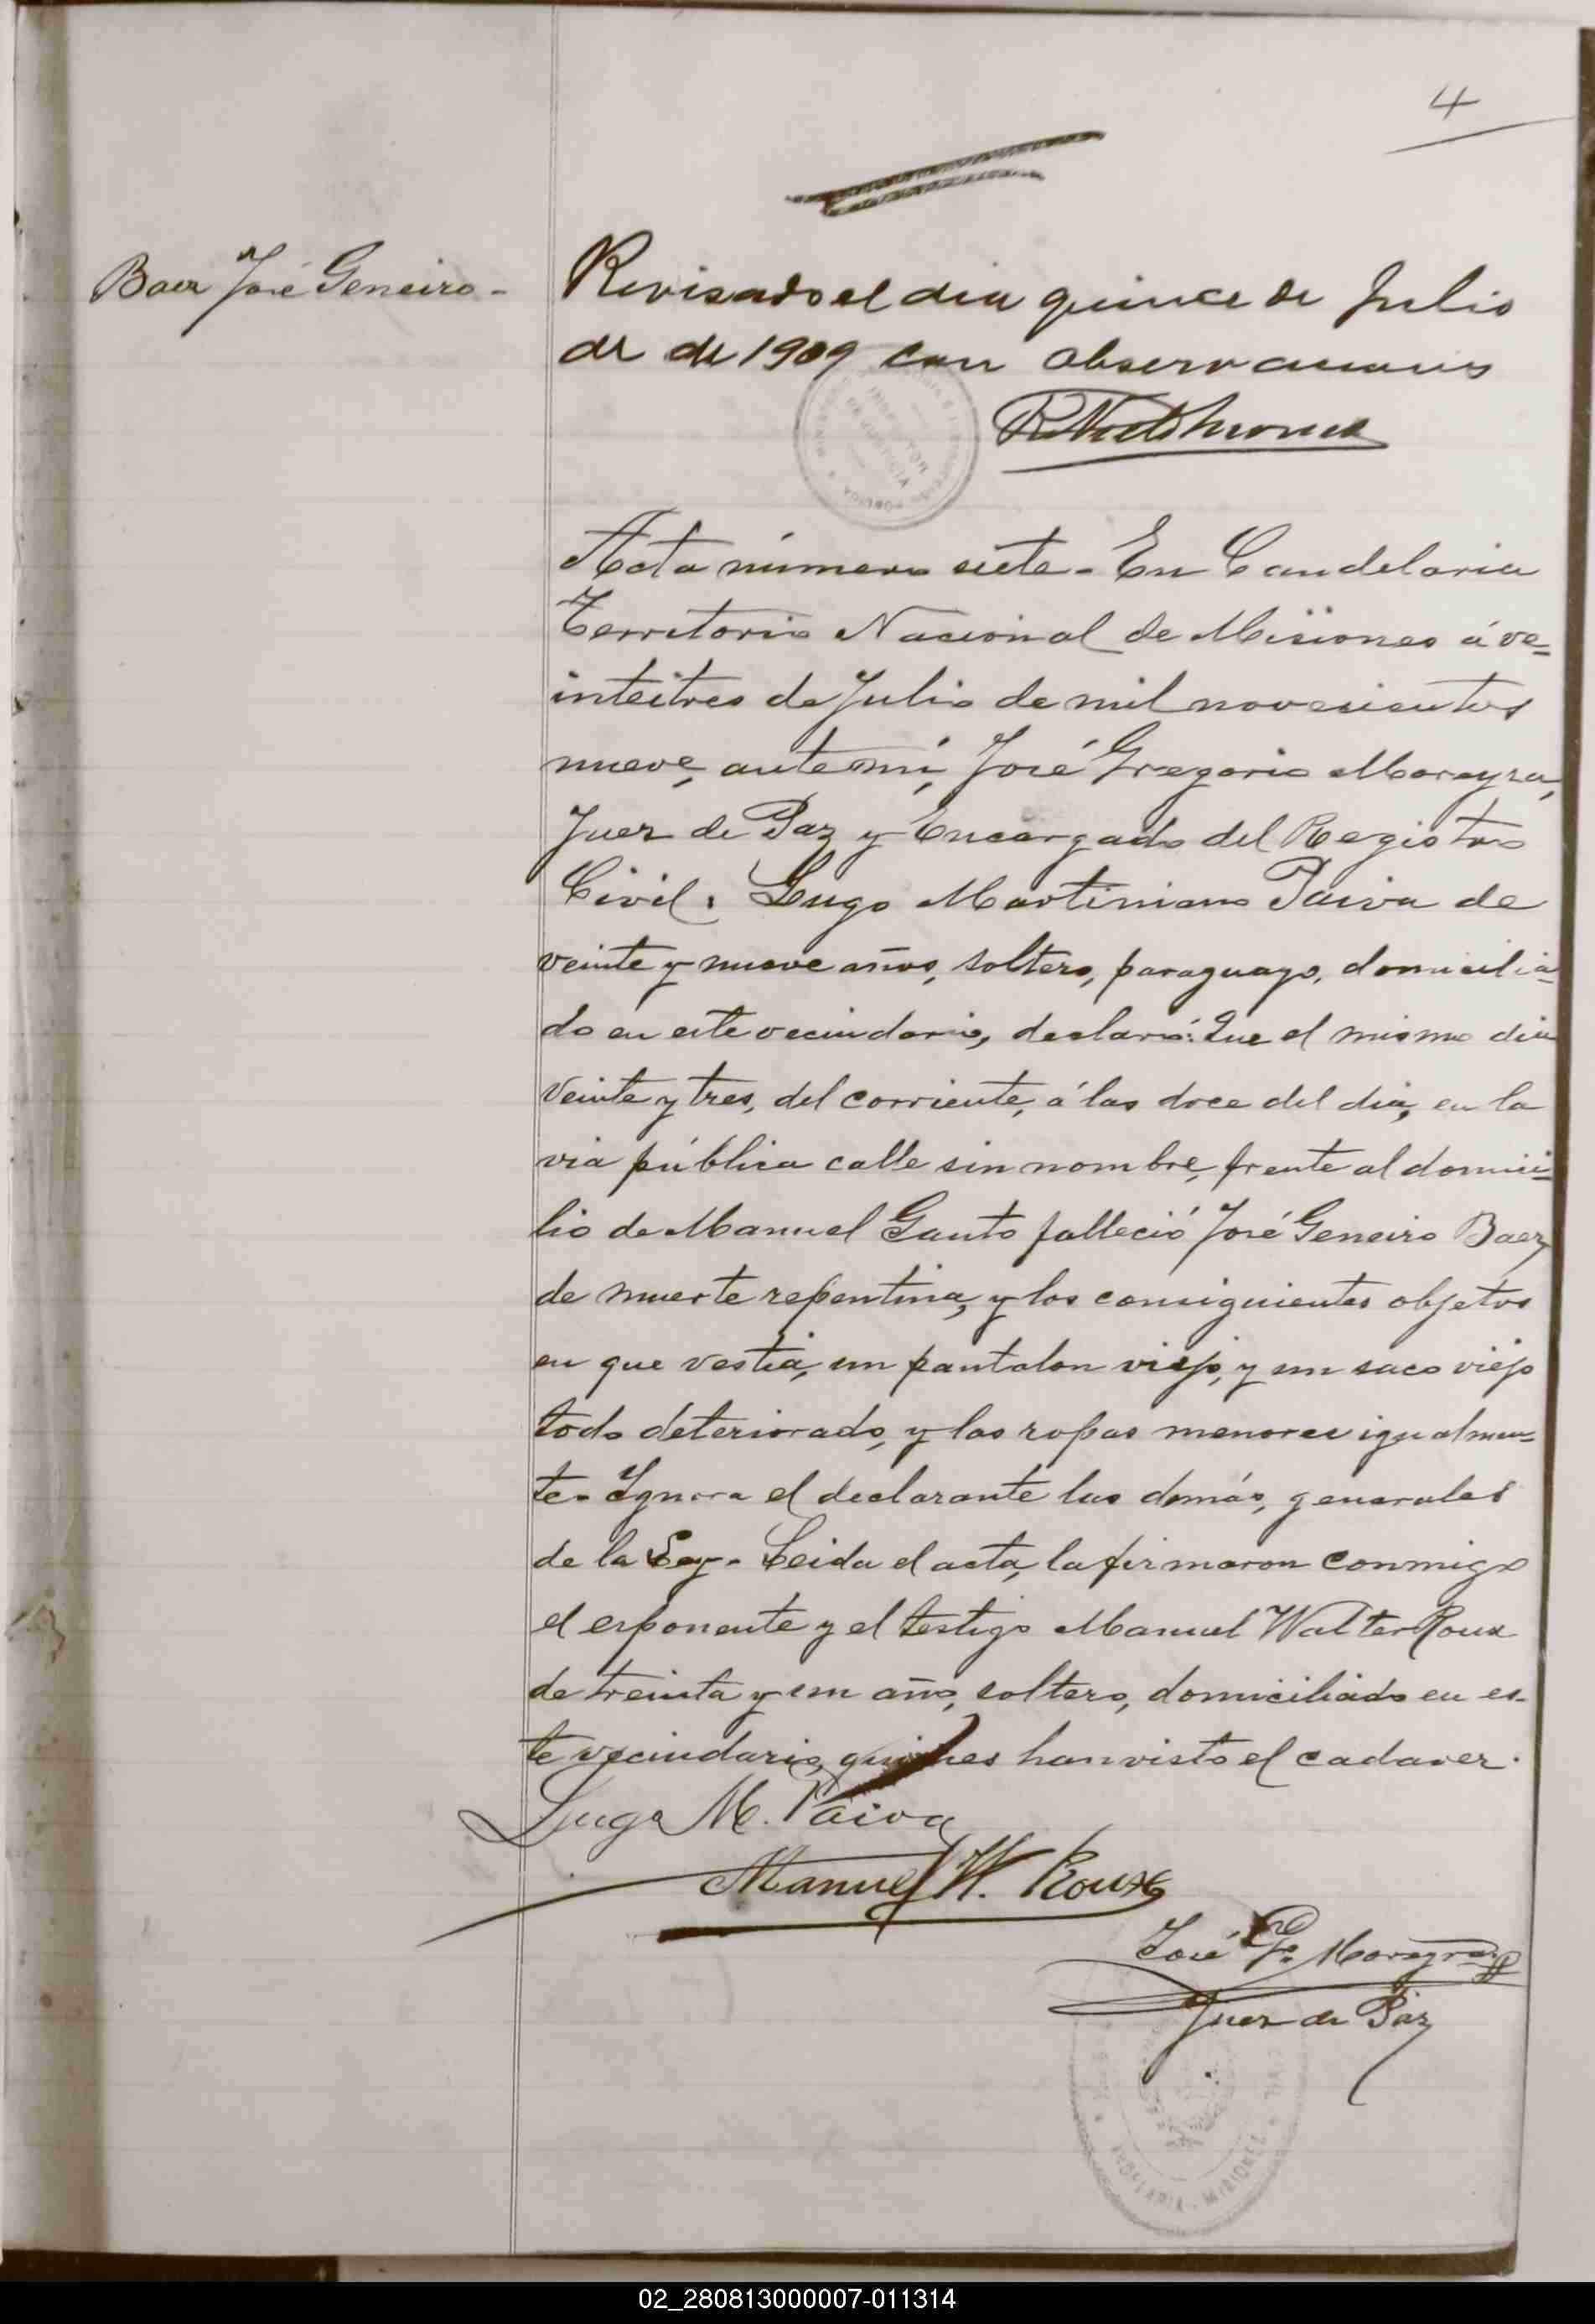 4
Baez José Geneiro -
Revisado el dia quince de Julio
de de 1909 con observaciones
INSPECTOR
DE JUSTICIA
Acta número siete - En Candelaria
Territorio Nacional de Misiones á ve=
inteitres de Julio de mil novecientos
nueve, ante mi, José Gregorio Moreyra,
Juez de Paz y Encargado del Registro
Civil. Lugo Martiniano Paiva de
veinte y nueve años, soltero, paraguayo, domicilia=
do en este vecindario, declaró: Que el mismo dia
veinte y tres, del corriente, á las doce del dia, en la
via pública calle sin nombre, frente al domici=
lio de Manuel Gauto falleció José Geneiro Baez
de muerte repentina, y los consiguientes objetos
en que vestia, un pantalon viejo, y un saco viejo
todo deteriorado, y las ropas menores igualmen=
te - Ignora el declarante las demás, generales
de la Ley - Leida el acta, la firmaron conmigo
el esponente y el testigo Manuel Walter Roux
de treinta y un año, soltero, domiciliado en es-
te vecindario, quienes han visto el cadaver.
Lugo M. Paiva
Manuel W. Roux
José G. Moreyra
Juez de Paz
CIVIL
CANDELARIA - MISIONES
02_280813000007-011314